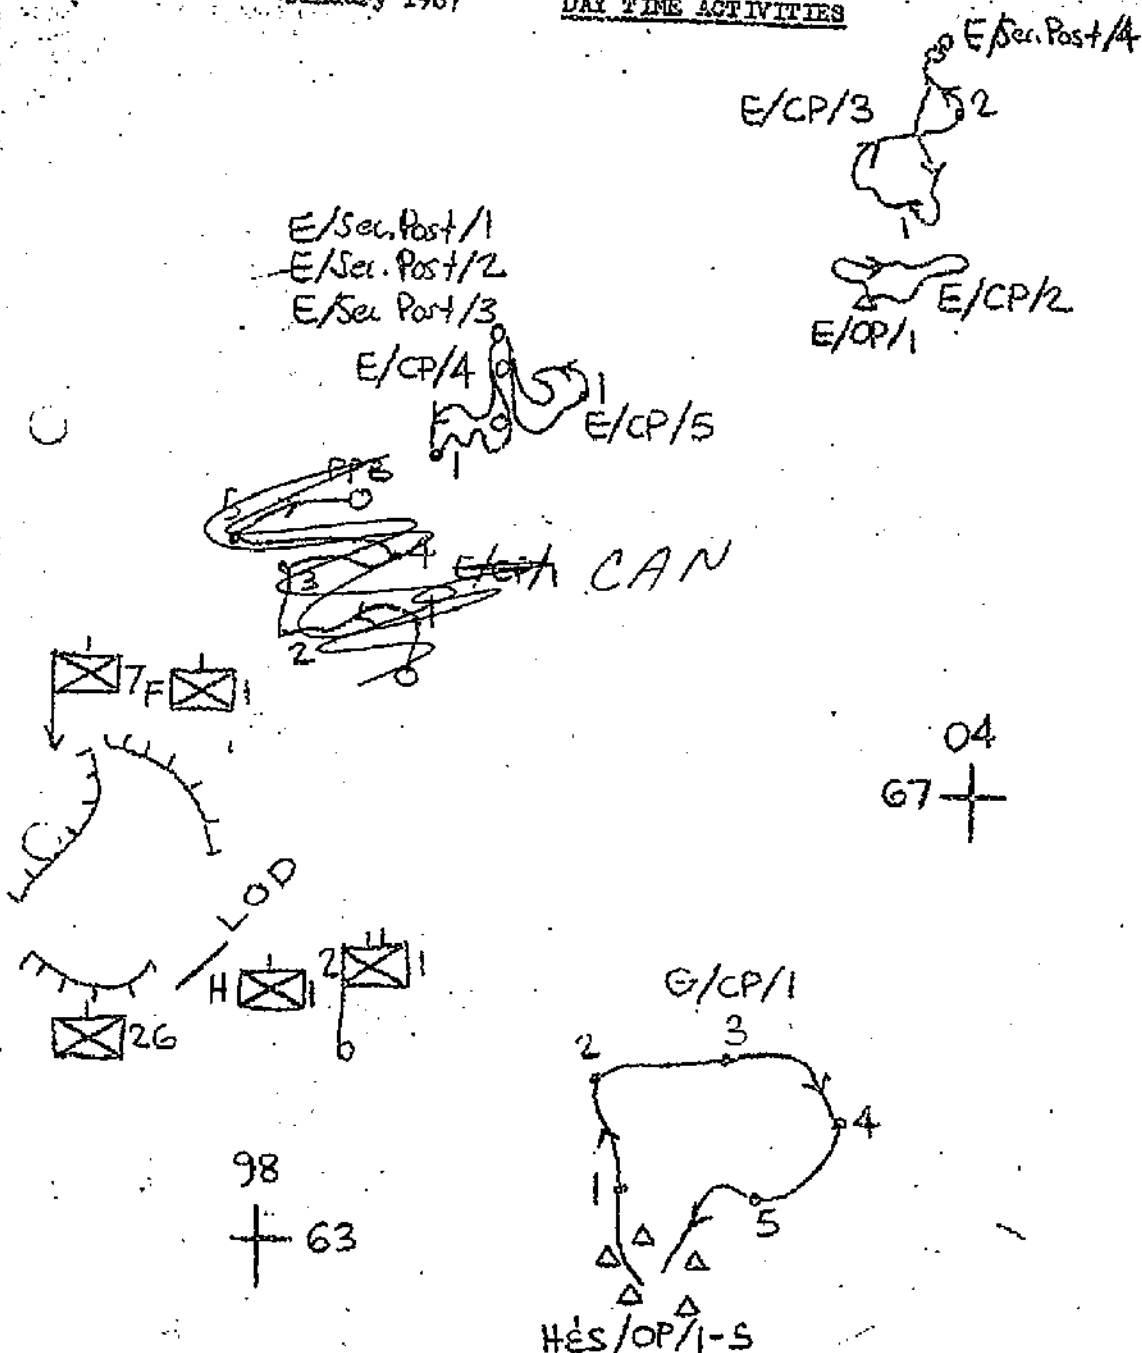 January 1967
DAY TIME ACTIVITIES
E/Sec.Post/4
E/CP/3
2
1
E/CP/2
E/OP/1
E/Sec.Post/1
E/Sec.Post/2
E/Sec Post/3
E/CP/4
1
E/CP/5
1
5
4
3
E/CP/1
CAN
1
2
7
F
1
04
67
LOD
H
1
2
1
26
G/CP/1
3
2
4
1
5
98
63
H&S/OP/1-5